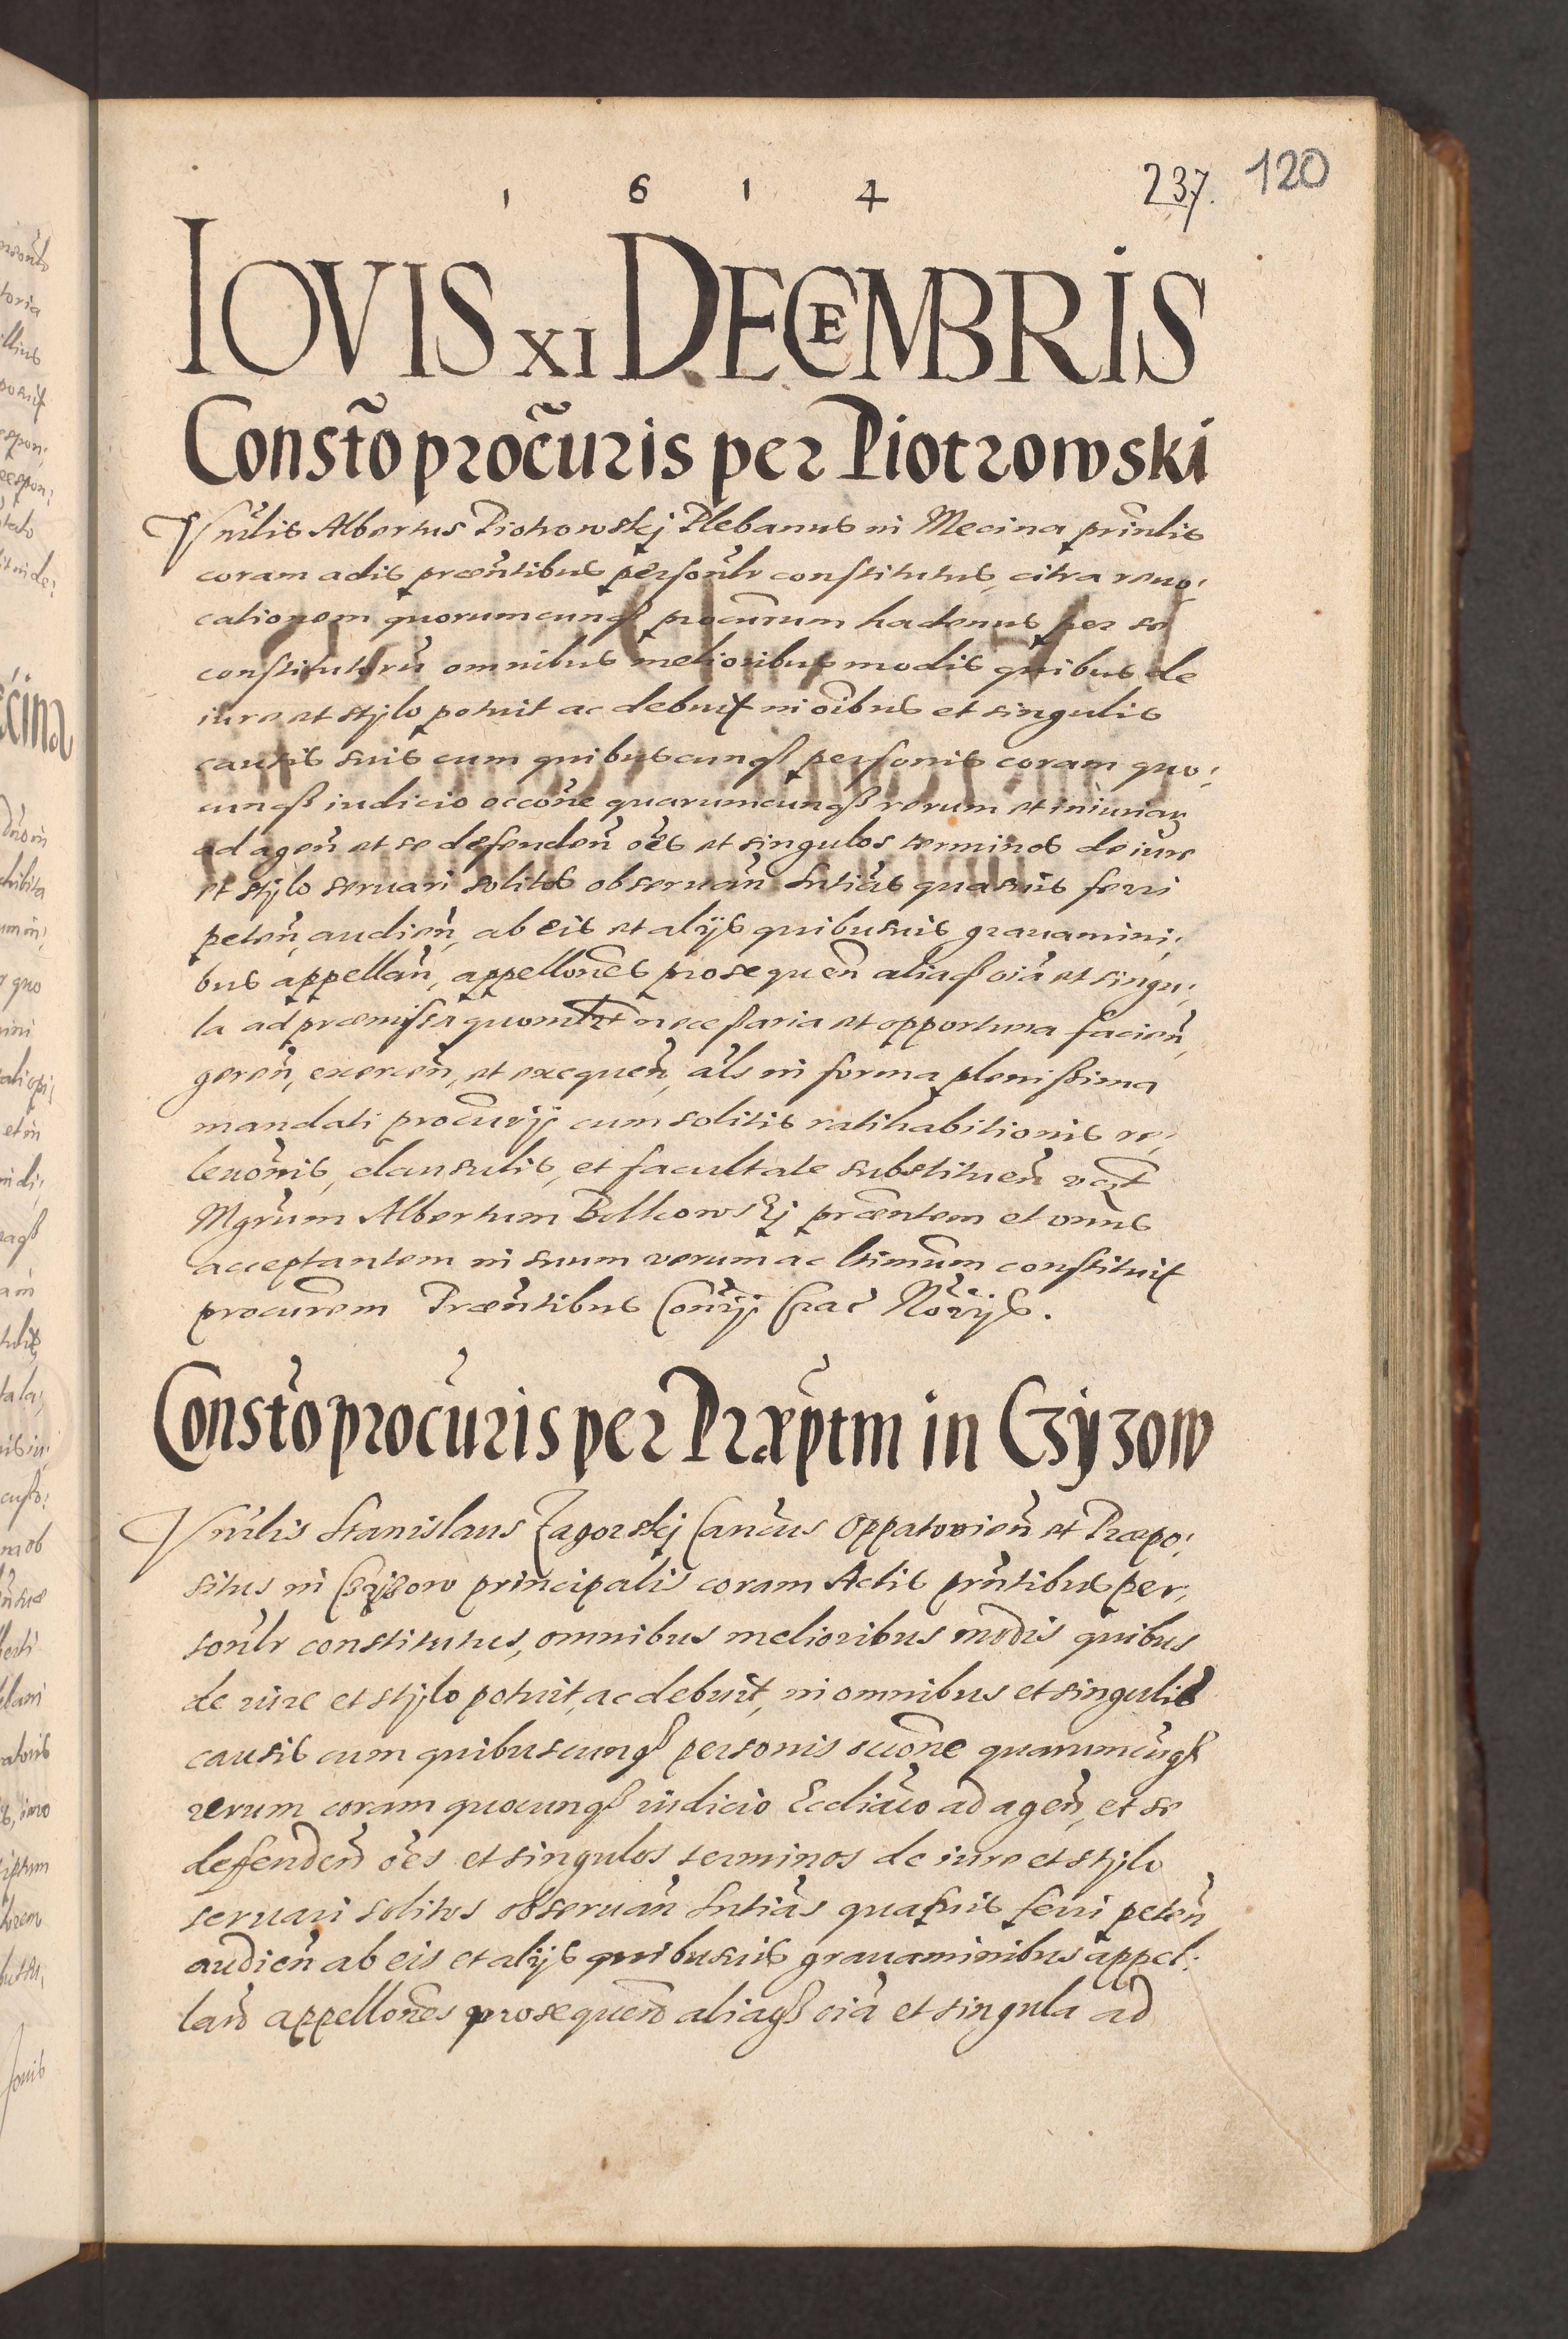 1 6 1 4
237. 120
IOVIS XI DECEMBRIS
Constõ procũris per Piotrowski
Vnĩlis Albertus Piotrowskj Plebanus in Mecina prĩnlis
coram actis præñtibus persoñlr constitutus, citra reuo:
cationem quorumcunqȝ procũrum hactenus per se
constitutorũ omnibus melioribus modis quibus de
iure et stylo potuit ac debuit in oĩbus et singulis
causis suis cum quibuscunqȝ personis coram quo:
cunqȝ iudicio occõne quarumcunqȝ rerum et iniuriar
ad ageñ et se defendeñ oẽs et singulos terminos de iure
et stylo seruari solitos obseruañ sntiãs quasuis ferri
peteñ, audieñ, ab eis et alijs quibusuis grauamini:
bus appellañ, appellõnes prosequeñ aliaqȝ oiã et singu:
la ad præmissa necessaria et opportuna facieñ,
gereñ, exerceñ, et exequeñ, als in forma plenissima
mandati procũrij cum solitis ratihabitionis re:
leuõnis, clausulis, et facultate substitueñ
Mgrũm Albertum præñtem et onus
acceptantem in suum verum ac ltimũm constituit
procũrem Præñtibus Coñrij Crac̃ Nõrijs.
Constõ procũris per Præp̃tm in Czyzow
Vnĩlis Stanislaus Zagorskj Canc̃us Oppatouieñ et Præpo:
situs in Czyzow principalis coram Actis prñtibus per:
soñlr constitutus, omnibus melioribus modis quibus
de iure et stylo potuit, ac debuit, in omnibus et singulis
causis cum quibuscunqȝ personis occõne quarumcũqȝ
rerum coram quocunqȝ iudicio Eccliãco ad ageñ, et se
deffendeñ oẽs et singulos terminos de iure et stylo
seruari solitos obseruañ sntiãs quasuis ferri peteñ
audieñ ab eis et alijs quibusuis grauaminibus appel:
lañ appellõnes prosequeñ aliaqȝ oiã et singula ad